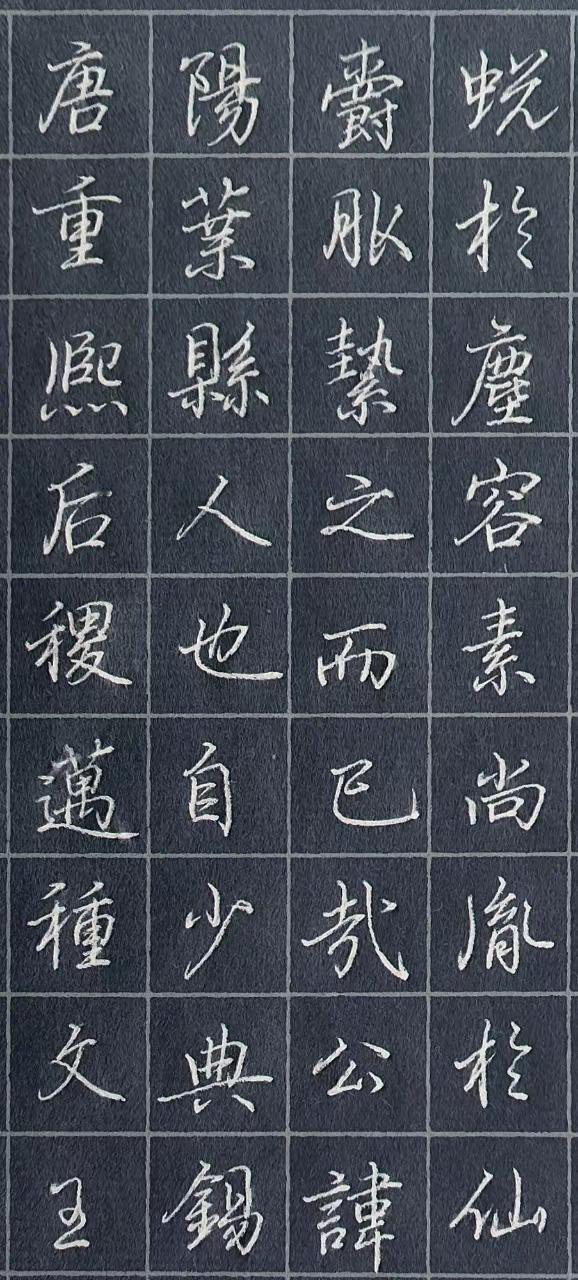 蛻於塵容素尚胤於仙
爵服縶之而已哉公諱
陽葉縣人也自少典錫
唐重熙后稷邁種文王